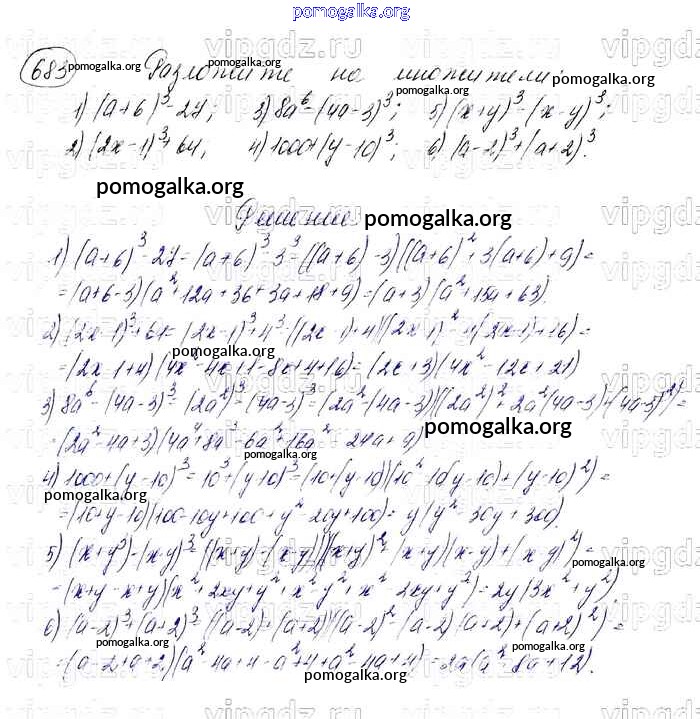 pomogalka.org
683 Разложите на множители:
1) (a+6)³-27; 3) 8a⁶-(4a-3)³; 5) (x+y)³-(x-y)³;
2) (2x-1)³+64; 4) 1000+(y-10)³; 6) (a-2)³+(a+2)³.
pomogalka.org
Решение pomogalka.org
1) (a+6)³-27=(a+6)³-3³=((a+6)-3)((a+6)²+3(a+6)+9)=
=(a+6-3)(a²+12a+36+3a+18+9)=(a+3)(a²+15a+63).
2) (2x-1)³+64=(2x-1)³+4³=((2x-1)+4)((2x-1)²-4(2x-1)+16)=
=(2x-1+4)(4x²-4x+1-8x+4+16)=(2x+3)(4x²-12x+21)
3) 8a⁶-(4a-3)³=(2a²)³-(4a-3)³=(2a²-(4a-3))((2a²)²+2a²(4a-3)+(4a-3)²)=
=(2a²-4a+3)(4a⁴+8a³-6a²+16a²-24a+9)
pomogalka.org
4) 1000+(y-10)³=10³+(y-10)³=(10+(y-10))(10²-10(y-10)+(y-10)²)=
=(10+y-10)(100-10y+100+y²-20y+100)=y(y²-30y+300).
5) (x+y³)-(x-y)³=((x+y)-(x-y))((x+y)²+(x+y)(x-y)+(x-y)²)=
=(x+y-x+y)(x²+2xy+y²+x²-y²+x²-2xy+y²)=2y(3x²+y²)
6) (a-2)³+(a+2)³=((a-2)+(a+2))((a-2)²-(a-2)(a+2)+(a+2)²)=
=(a-2+a+2)(a²-4a+4-a²+4+a²-4a+4)=2a(a²-8a+12).
pomogalka.org